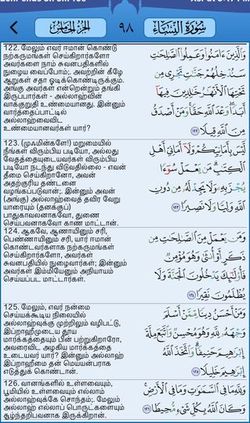 سُورَةُ النِّسَاءِ
٩٨
الجزء الخامس
122. மேலும் எவர் ஈமான் கொண்டு
நற்கருமங்கள் செய்கிறார்களோ
அவர்களை நாம் சுவனபதிகளில்
நுழைய வைப்போம்; அவற்றின் கீழே
ஆறுகள் சதா ஓடிக்கொண்டிருக்கும்.
அங்கு அவர்கள் என்றென்றும் தங்கி
இருப்பார்கள் - அல்லாஹ்வின்
வாக்குறுதி உண்மையானது. இன்னும்
வார்த்தைப்பாட்டில்
அல்லாஹ்வைவிட
உண்மையானவர்கள் யார்?
وَالَّذِينَ آمَنُوا وَعَمِلُوا الصَّالِحَاتِ
سَنُدْخِلُهُمْ جَنَّاتٍ تَجْرِي مِن
تَحْتِهَا الْأَنْهَارُ خَالِدِينَ فِيهَا
أَبَدًا وَعْدَ اللَّهِ حَقًّا وَمَنْ أَصْدَقُ
مِنَ اللَّهِ قِيلًا ١٢٢
123. (முஃமின்களே!) மறுமையில்
நீங்கள் விரும்பிய படியோ, அல்லது
வேதத்தையுடையவர்கள் விரும்பிய
படியோ நடந்து விடுவதில்லை - எவன்
தீமை செய்கிறானோ, அவன்
அதற்குரிய தண்டனை
வழங்கப்படுவான்; இன்னும் அவன்
(அங்கு) அல்லாஹ்வைத் தவிர வேறு
யாரையும் (தனக்குப்)
பாதுகாவலனாகவோ, துணை
செய்பவனாகவோ காண மாட்டான்.
لَّيْسَ بِأَمَانِيِّكُمْ وَلَا أَمَانِيِّ أَهْلِ
الْكِتَابِ مَن يَعْمَلْ سُوءًا
يُجْزَ بِهِ وَلَا يَجِدْ لَهُ مِن دُونِ
اللَّهِ وَلِيًّا وَلَا نَصِيرًا ١٢٣
124. ஆகவே, ஆணாயினும் சரி,
பெண்ணாயினும் சரி, யார் ஈமான்
கொண்டவர்களாக நற்கருமங்கள்
செய்கிறார்களோ, அவர்கள்
சுவனபதியில் நுழைவார்கள்; இன்னும்
அவர்கள் இம்மியேனும் அநியாயம்
செய்யப்பட மாட்டார்கள்.
وَمَن يَعْمَلْ مِنَ الصَّالِحَاتِ مِن
ذَكَرٍ أَوْ أُنثَىٰ وَهُوَ مُؤْمِنٌ
فَأُولَٰئِكَ يَدْخُلُونَ الْجَنَّةَ وَلَا
يُظْلَمُونَ نَقِيرًا ١٢٤
125. மேலும், எவர் நன்மை
செய்யக்கூடிய நிலையில்
அல்லாஹ்வுக்கு முற்றிலும் வழிபட்டு,
இப்றாஹீமுடைய தூய
மார்க்கத்தையும் பின் பற்றுகிறாரோ,
அவரைவிட அழகிய மார்க்கத்தை
உடையவர் யார்? இன்னும் அல்லாஹ்
இப்றாஹீமை தன் மெய்யன்பராக
எடுத்துக் கொண்டான்.
وَمَنْ أَحْسَنُ دِينًا مِّمَّنْ أَسْلَمَ
وَجْهَهُ لِلَّهِ وَهُوَ مُحْسِنٌ وَاتَّبَعَ مِلَّةَ
إِبْرَاهِيمَ حَنِيفًا وَاتَّخَذَ اللَّهُ
إِبْرَاهِيمَ خَلِيلًا ١٢٥
126. வானங்களில் உள்ளவையும்,
பூமியில் உள்ளவையும் எல்லாம்
அல்லாஹ்வுக்கே சொந்தம்; மேலும்
அல்லாஹ் எல்லாப் பொருட்களையும்
சூழ்ந்தறிபவனாக இருக்கிறான்.
وَلِلَّهِ مَا فِي السَّمَاوَاتِ وَمَا فِي الْأَرْضِ
وَكَانَ اللَّهُ بِكُلِّ شَيْءٍ مُّحِيطًا ١٢٦